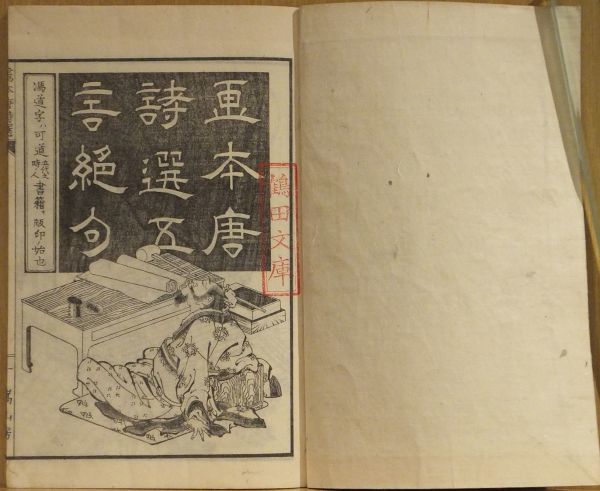 画本唐
詩選五
言絶句
馮道字ハ可道五代ノ時ノ人書籍ヲ版印ノ始也
鶴田文庫